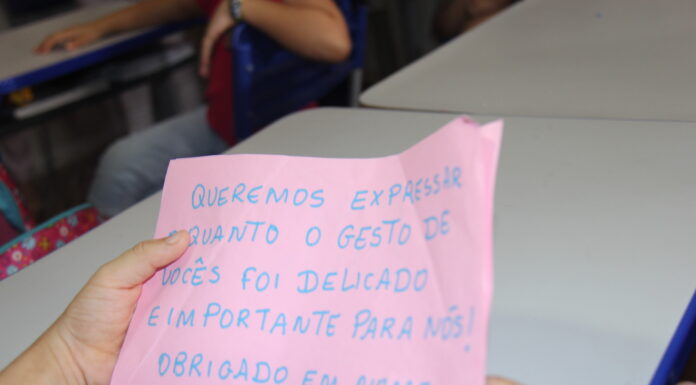 QUEREMOS EXPRESSAR
QUANTO O GESTO DE
VOCÊS FOI DELICADO
E IMPORTANTE PARA NÓS!
OBRIGADO EM